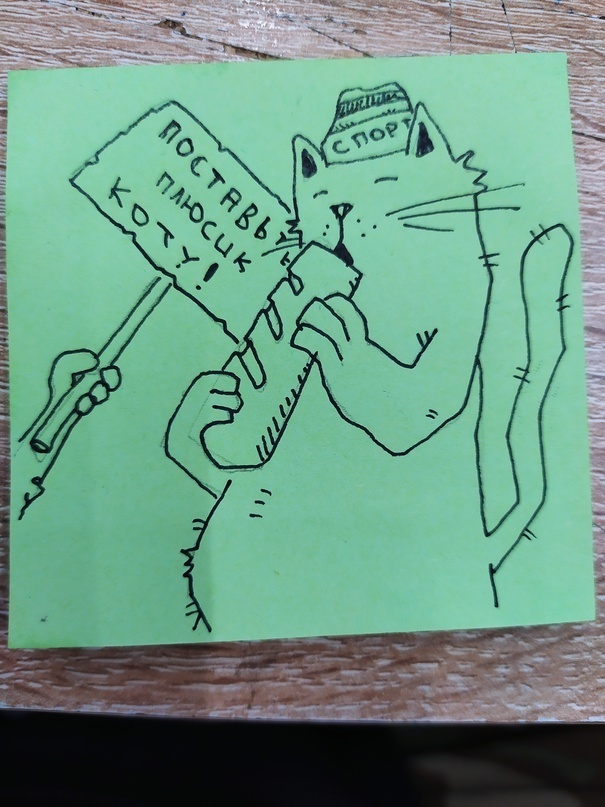 СПОРТ
ПОСТАВЬ
ПЛЮСИК
КОТУ!